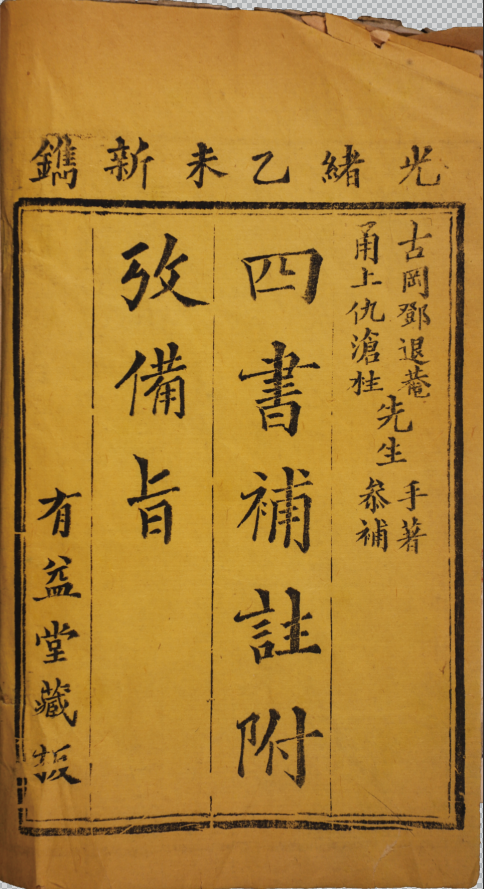 光緒乙未新鐫
古岡鄧退菴
甬上仇滄柱
先生
手著
叅補
四書補註附
攷備旨
有益堂藏板